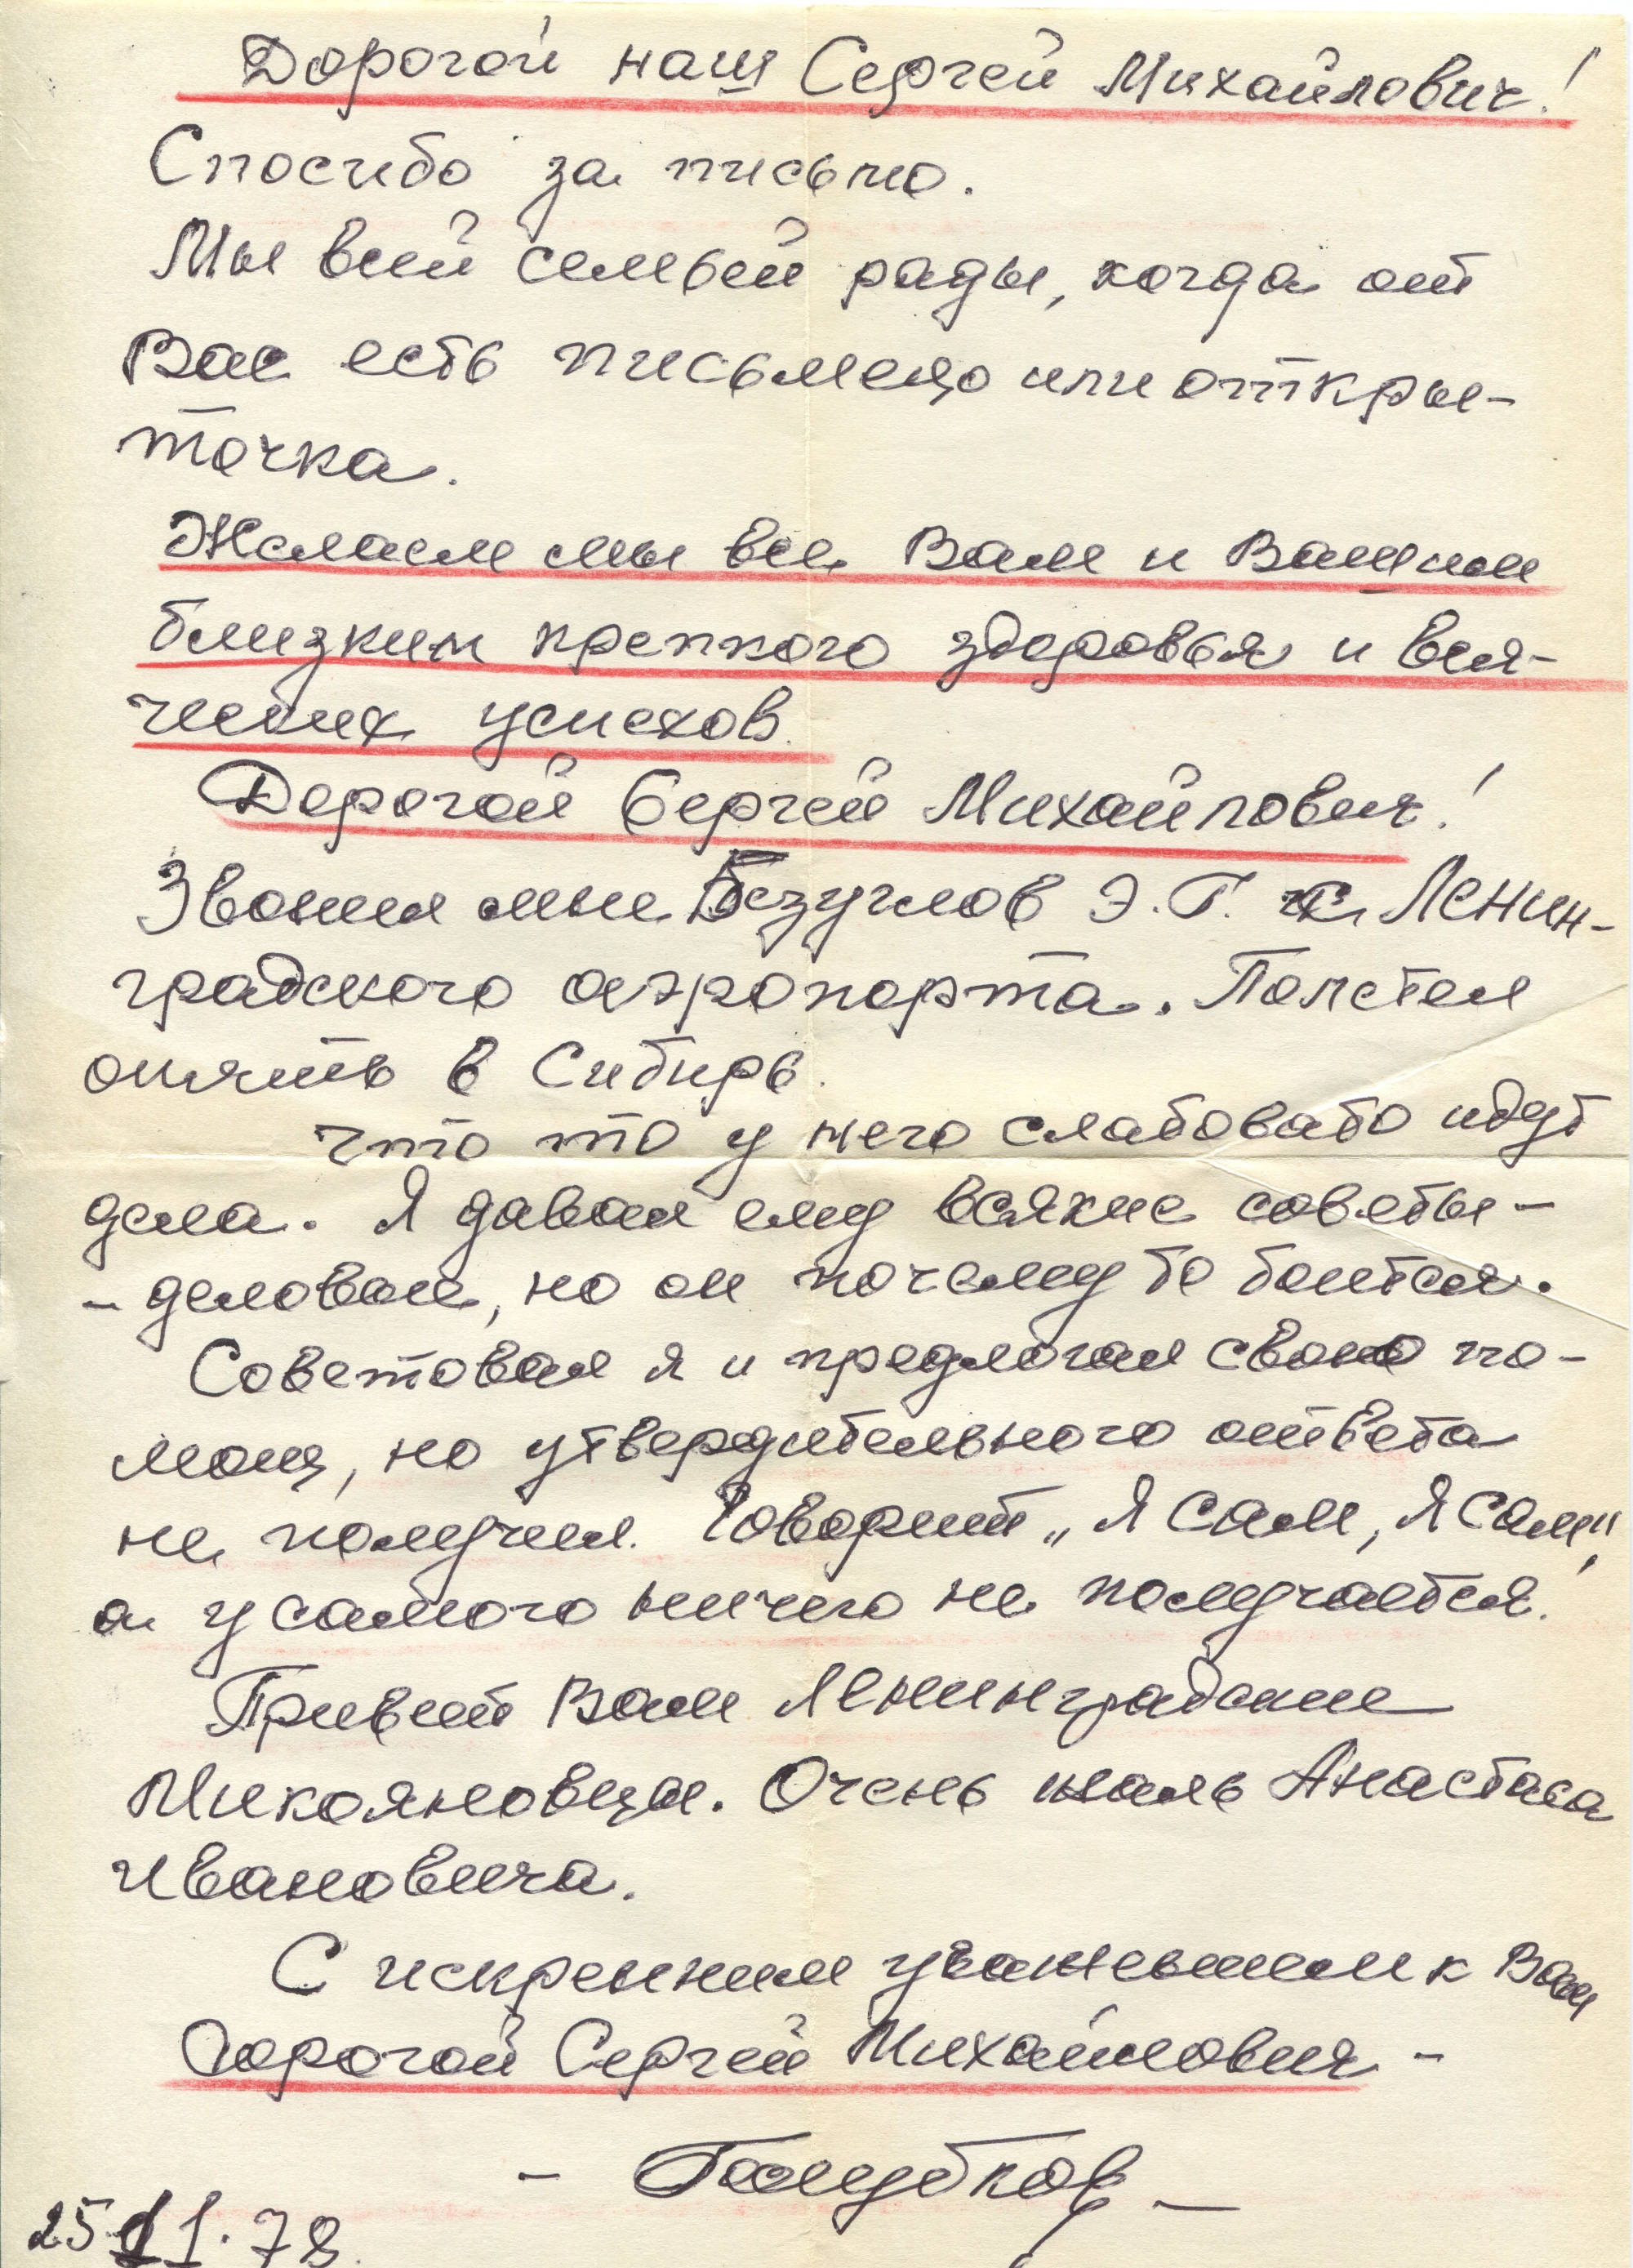 Дорогой наш Сергей Михайлович!
Спасибо за письмо.
Мы всей семьей рады, когда от
Вас есть письмецо или откры-
точка.
Желаем мы все Вам и Вашим
близким крепкого здоровья и вся-
ческих успехов.
Дорогой Сергей Михайлович!
Звонил мне Безуглов Э.Г. с Ленин-
градского аэропорта. Полетел
опять в Сибирь.
Что то у него слабовато идут
дела. Я давал ему всякие советы -
- деловые, но он почему то боится.
Советовал я и предлагал свою по-
мощь, но утвердительного ответа
не получил. Говорит „Я сам, Я сам",
а у самого ничего не получается.
Привет Вам Ленинградские
Микояновцы. Очень жаль Анастаса
Ивановича.
С искренним уважением к Вам
Дорогой Сергей Михайлович -
- Голубков -
25 11.78.